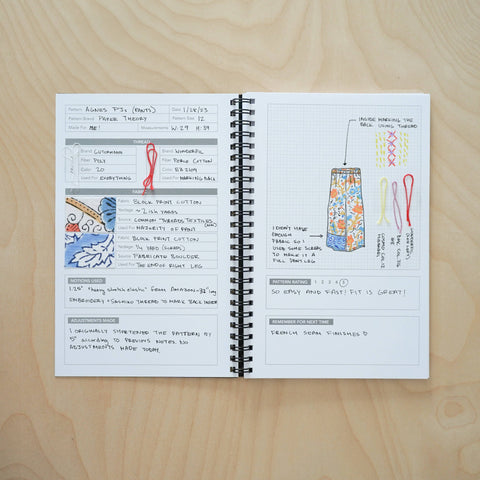 Pattern AGNES PJs (PANTS) Date 1/28/23
Pattern Brand PAPER THEORY Pattern Size 12
Made For ME! Measurements W:29 H:39
THREAD
Brand GUTERMANN Brand WONDERFIL
Fiber POLY Fiber PEARLE COTTON
Color 20 Color
Used For EVERYTHING Used For MARKING BACK
FABRIC
Fabric BLOCK PRINT COTTON
Yardage YARDS
Source COMMON THREADS TEXTILES
Used For MAJORITY OF PANT
Fabric BLOCK PRINT COTTON
Yardage 1/4 YARD (SCRAPS)
Source FABRICATE BOULDER
Used For THE END OF RIGHT LEG
NOTIONS USED
1.25" "heavy stretch elastic" FROM AMAZON - 32" long
EMBROIDERY + SASHIKO THREAD TO MARK BACK INSIDE
ADJUSTMENTS MADE
I ORIGINALLY SHORTENED THE PATTERN BY
5" according to PREVIOUS NOTES. NO
ADJUSTMENTS MADE TODAY.
INSIDE MARKING THE
BACK USING THREAD
I DIDN'T HAVE
ENOUGH
FABRIC SO I
USED SOME SCRAPS
TO MAKE IT A
FULL PANT LEG
PATTERN RATING 1 2 3 4 5
SO EASY AND FAST! FIT IS GREAT!
REMEMBER FOR NEXT TIME
FRENCH SEAM FINISHES